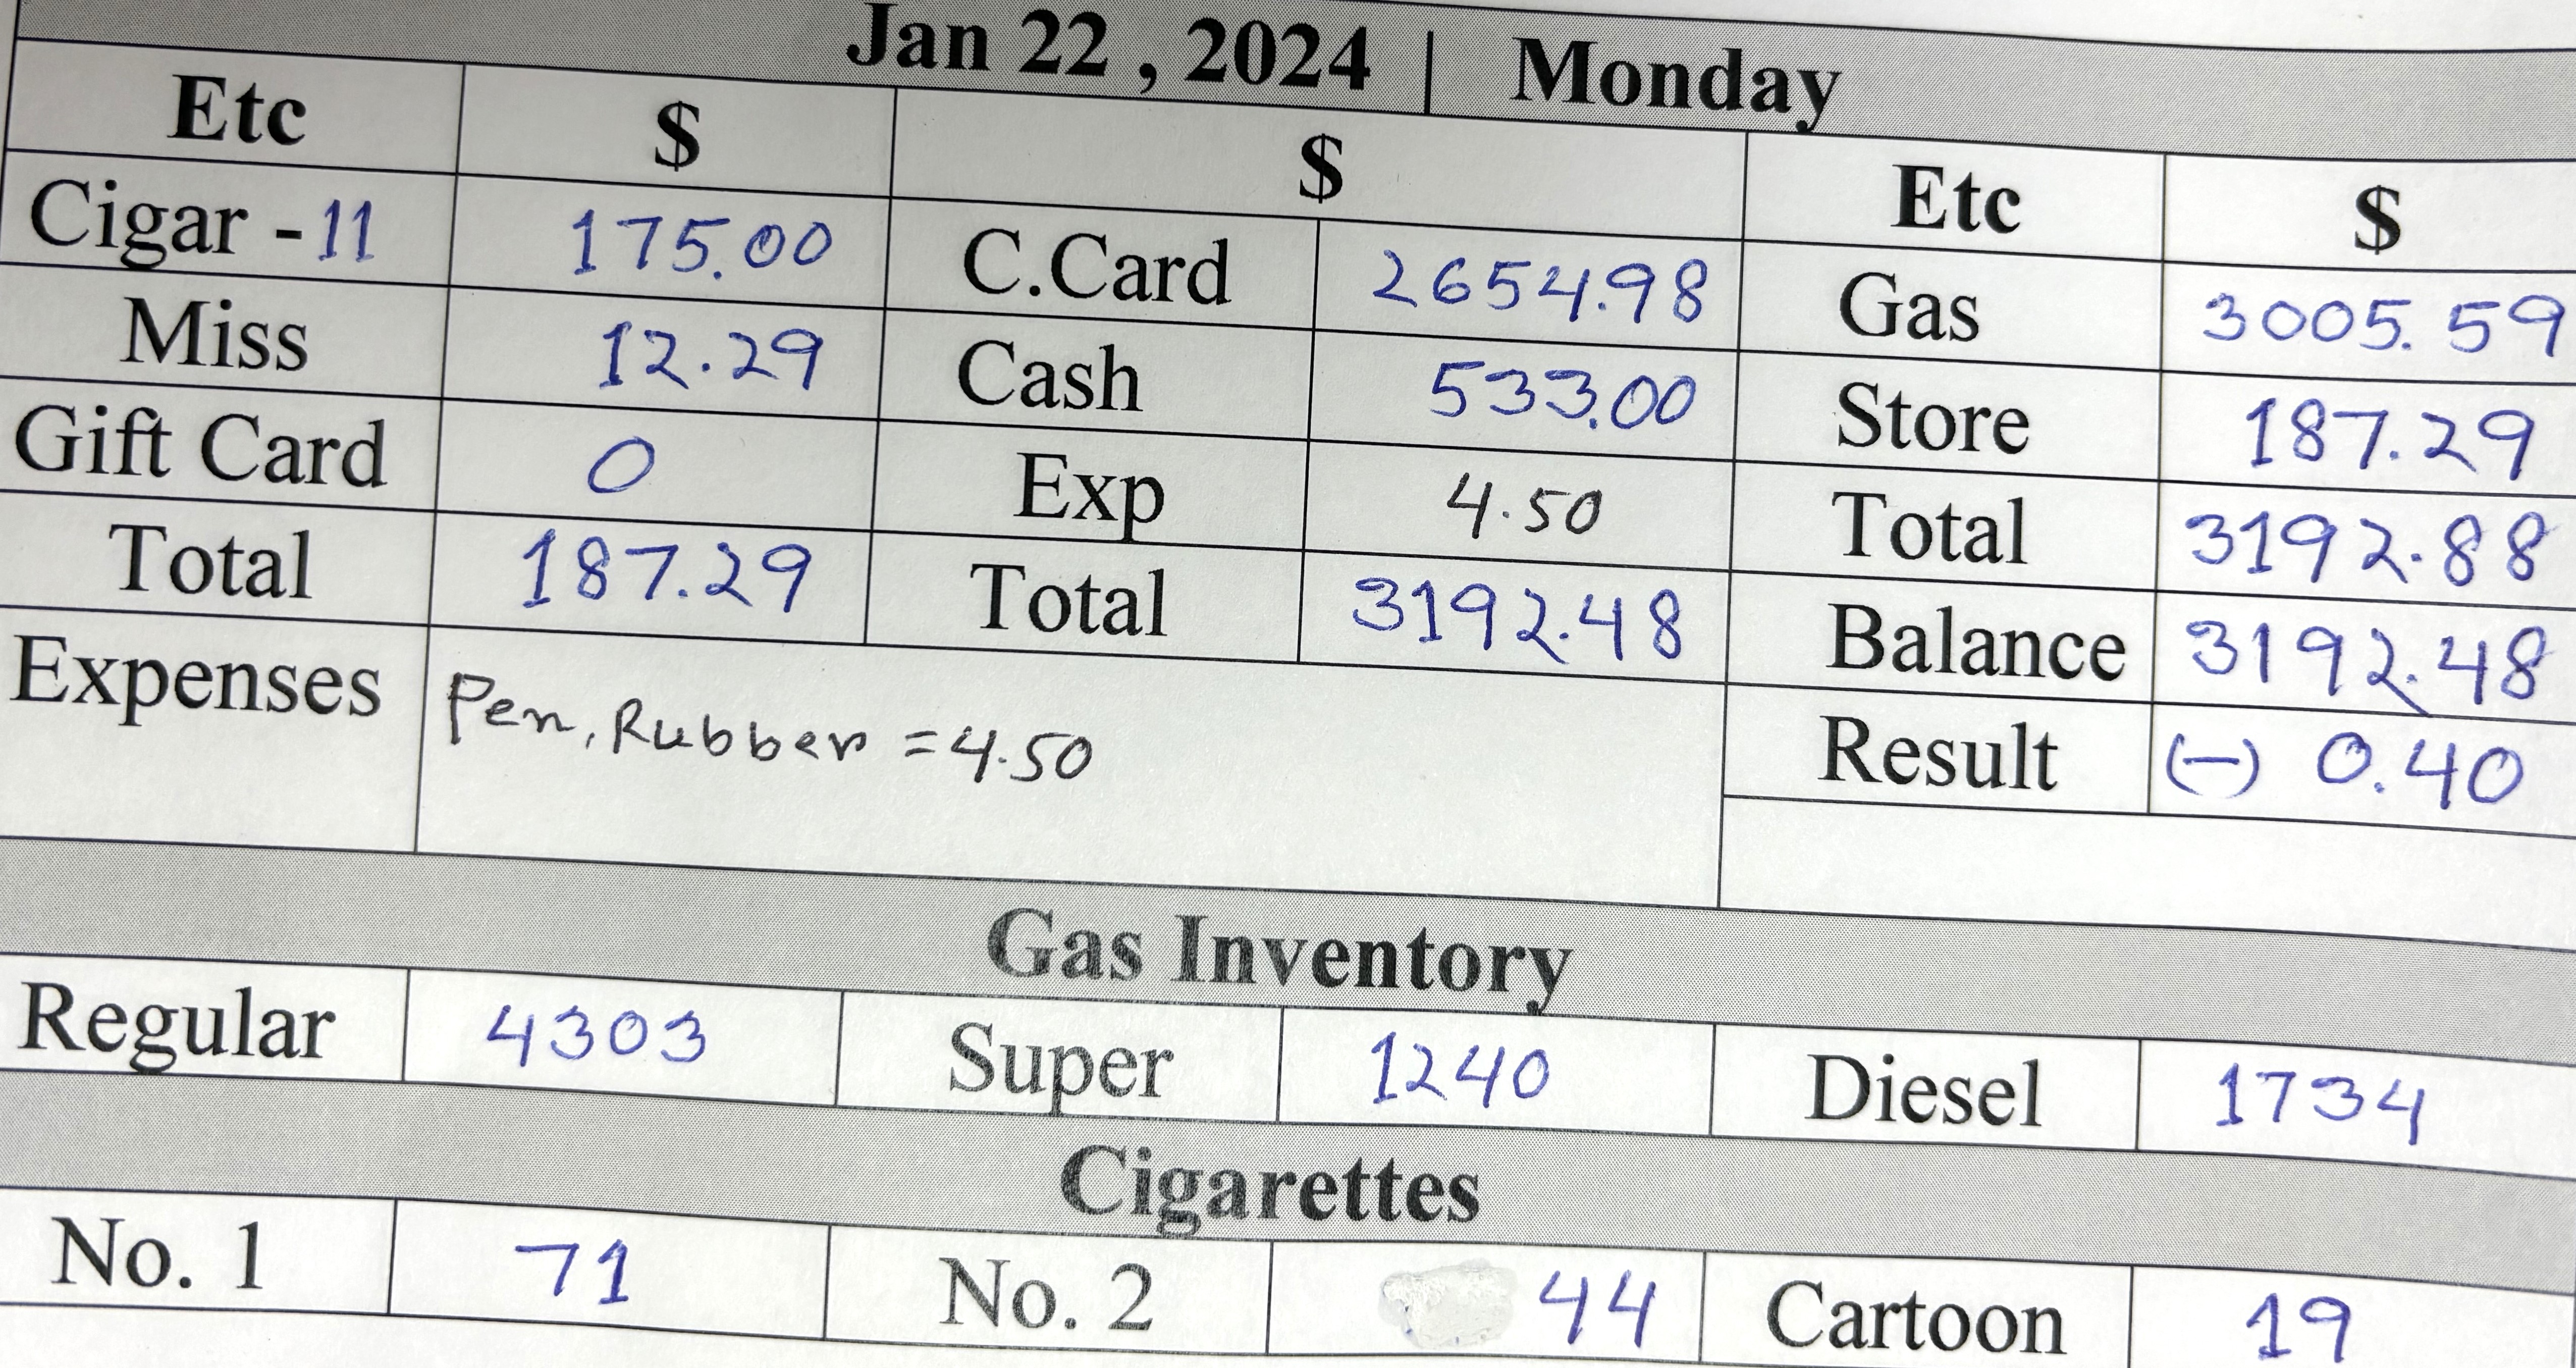 Jan 22 , 2024 | Monday
Etc $ $ Etc $
Cigar - 11 175.00 C.Card 2654.98 Gas 3005.59
Miss 12.29 Cash 533.00 Store 187.29
Gift Card 0 Exp 4.50 Total 3192.88
Total 187.29 Total 3192.48 Balance 3192.48
Expenses Pen, Rubber = 4.50 Result (-) 0.40
Gas Inventory
Regular 4303 Super 1240 Diesel 1734
Cigarettes
No. 1 71 No. 2 44 Cartoon 19